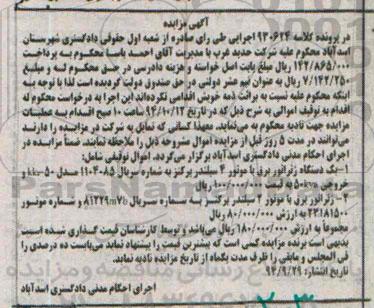 آگهی مزایده
در پرونده کلاسه ۹۳۰۶۲۴ اجرایی طی رای صادره از شعبه اول حقوقی دادگستری شهرستان
اسدآباد محکوم علیه شرکت حدید غرب با مدیریت آقای احمد باسا محکوم به پرداخت
۱۴۲/۸۶۵/۰۰۰ ریال مبلغ بابت اصل خواسته و هزینه دادرسی در حق محکوم له و مبلغ
۷/۱۴۲/۲۵۰ ریال به عنوان نیم عشر دولتی در حق صندوق دولت گردیده است لذا با توجه به
اینکه محکوم علیه نسبت به برائت ذمه خویش اقدامی نکرده‌اند این اجرا به درخواست محکوم له
اقدام به توقیف اموالی به شرح ذیل که در تاریخ ۹۴/۱۰/۱۲ ساعت ۱۰ صبح اقدام به عملیات
مزایده جهت تادیه محکوم به می‌نماید. مهمذا کسانی که تمایل به شرکت در مزایده را دارند
می‌توانند در مدت ۵ روز قبل از مزایده اموال مشروحه ذیل را ملاحظه نمایند. ضمناً مزایده در
اجرای احکام مدنی دادگستری اسدآباد برگزار می‌گردد. اموال توقیفی شامل:
۱-یک دستگاه ژنراتور برق با موتور ۴ سیلندر پرکنز به شماره سریال ۸۵-۱۱۰۴ مدل ۵۰-kkr و
خروجی ۵۰kwa به قیمت ریال
۲- ژنراتور برق با موتور ۲ سیلندر پرکنز به شماره سریال و شماره موتور
۲۳۱۸۱۵۰۰ به ارزش ۸۰/۰۰۰/۰۰۰ ریال
مجموعاً به ارزش ۱۸۰/۰۰۰/۰۰۰ ریال می‌باشد و توسط کارشناسان قیمت گذاری شده است
بدیهی است برنده مزایده کسی است که بیشترین قیمت را پیشنهاد نماید می‌بایست ده درصدی را
فی المجلس و مابقی را ظرف مدت یکماه از تاریخ مزایده تادیه نماید.
تاریخ انتشار: ۹۴/۹/۲۹
اجرای احکام مدنی دادگستری اسدآباد